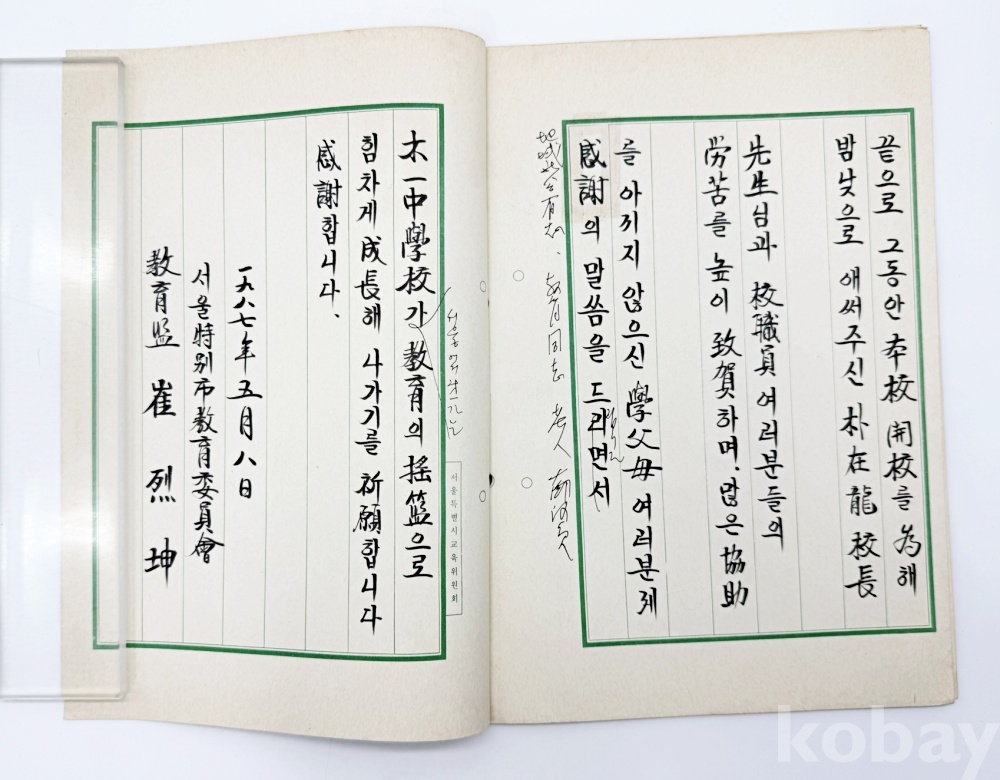 끝으로 그동안 本校 開校를 爲해
밤낮으로 애써주신 朴在龍 校長
先生님과 校職員 여러분들의
勞苦를 높이 致賀하며, 많은 協助
를 아끼지 않으신 學父母 여러분께
感謝의 말씀을 드리면서
木一中學校가 敎育의 搖籃으로
힘차게 成長해 나가기를 祈願합니다
感謝합니다.
一九八七年 五月 八日
서울特別市敎育委員會
敎育監 崔烈坤
서울특별시교육위원회
kobay